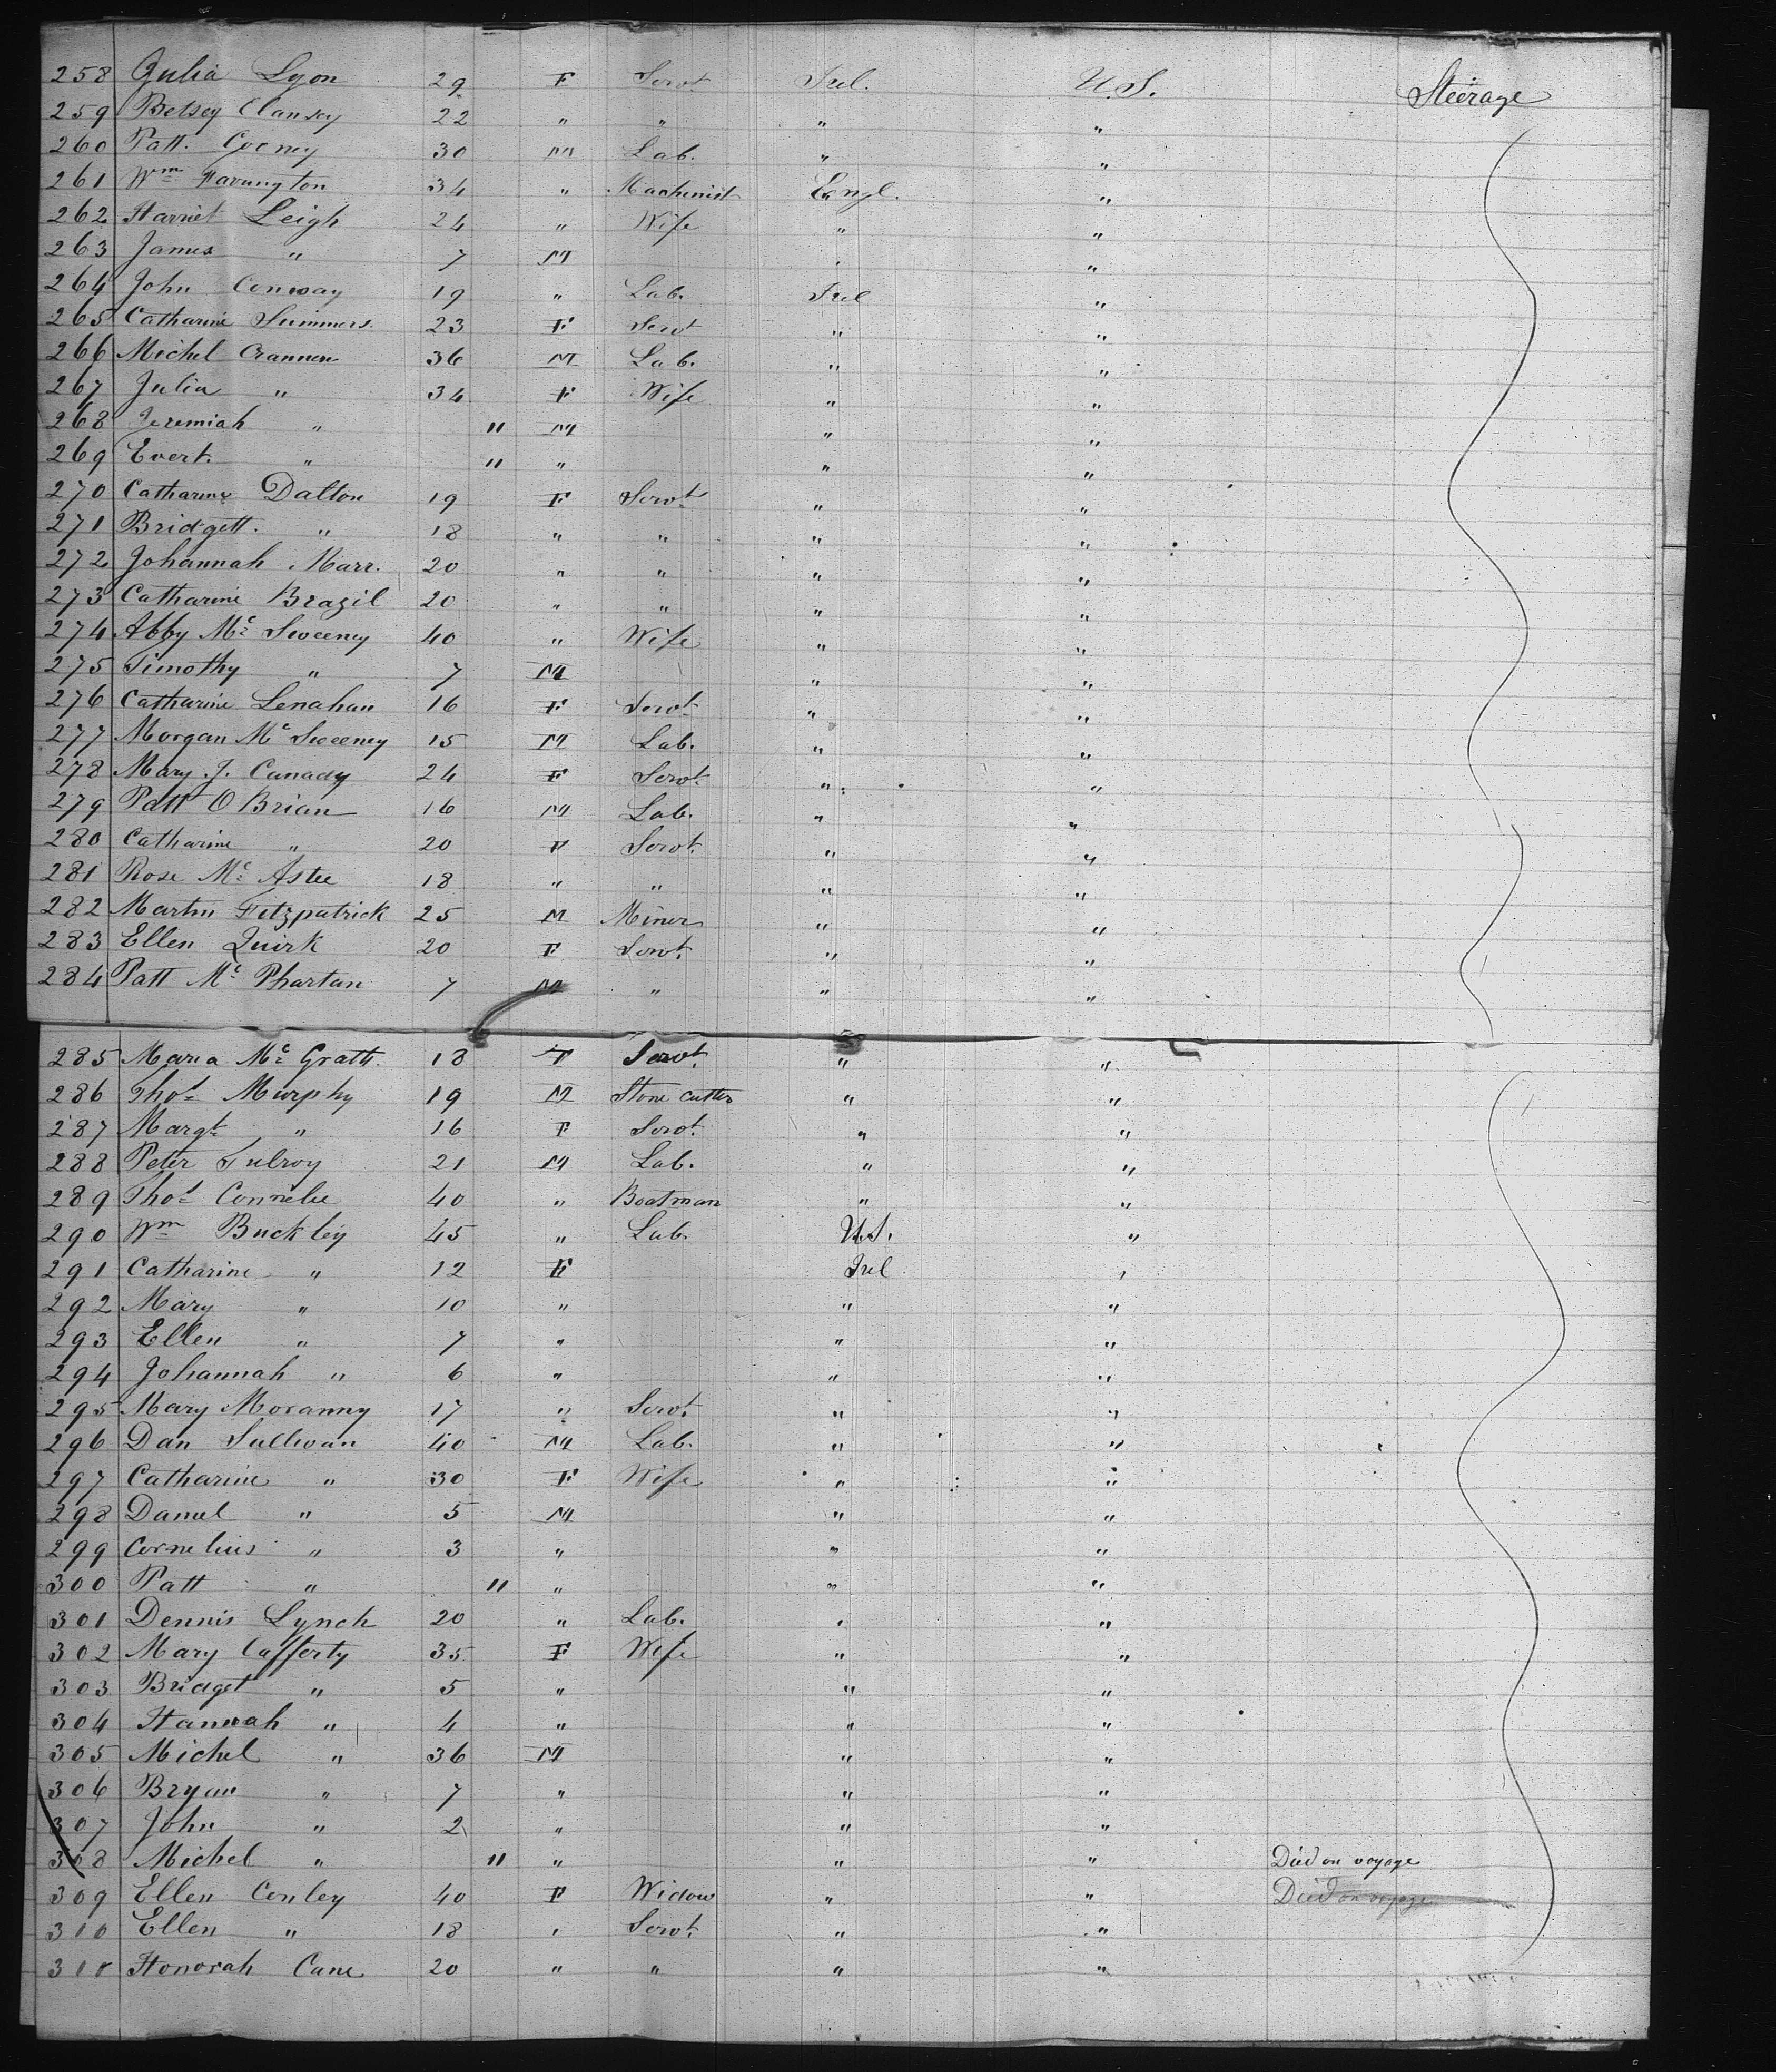 258 Julia Lyon 29 F Servt Irel. U.S. Steerage
259 Betsey Clansey 22 " " " "
260 Patt. Cooney 30 M Lab. " "
261 Wm Farrington 34 " Machinist Engl. "
262 Harriet Leigh 24 " Wife " "
263 James " 7 M " "
264 John Conway 19 " Lab. Irel "
265 Catharine Summers. 23 F Servt " "
266 Michel Crannen 36 M Lab. " "
267 Julia " 34 F Wife " "
268 Jeremiah " " M " "
269 Evert. " " " " "
270 Catharine Dalton 19 F Servt " "
271 Bridgett. " 18 " " " "
272 Johannah Marr. 20 " " " "
273 Catharine Brazil 20 " " " "
274 Abby Mc Sweeney 40 " Wife " "
275 Timothy " 7 M " "
276 Catharine Lenahan 16 F Servt " "
277 Morgan Mc Sweeney 15 M Lab. " "
278 Mary J. Canady 24 F Servt. " "
279 Patt O Brian 16 M Lab. " "
280 Catharine " 20 F Servt. " "
281 Rose Mc Astee 18 " " " "
282 Martin Fitzpatrick 25 M Miner " "
283 Ellen Quirk 20 F Servt. " "
284 Patt Mc Phartan 7 M " " "
285 Maria Mc Grath. 18 F Servt. " "
286 Thos Murphy 19 M Stone Cutter " "
287 Margt " 16 F Servt. " "
288 Peter Tulroy 21 M Lab. " "
289 Thos Connelee 40 " Boatman " "
290 Wm Buckley 45 " Lab. U.S. "
291 Catharine " 12 F Irel "
292 Mary " 10 " " "
293 Ellen " 7 " " "
294 Johannah " 6 " " "
295 Mary Moranny 17 " Servt. " "
296 Dan Sullivan 40 M Lab. " "
297 Catharine " 30 F Wife " "
298 Daniel " 5 M " "
299 Cornelius " 3 " " "
300 Patt " " " " "
301 Dennis Lynch 20 " Lab. " "
302 Mary Cafferty 35 F Wife " "
303 Bridget " 5 " " "
304 Hannah " 4 " " "
305 Michel " 36 M " "
306 Bryan " 7 " " "
307 John " 2 " " "
308 Michel " " " " " Died on voyage
309 Ellen Conley 40 F Widow " " Died on voyage
310 Ellen " 18 " Servt. " "
311 Honorah Cane 20 " " " "